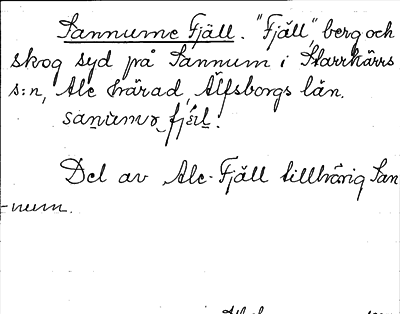 Sannume Fjäll. "Fjäll", berg och
skog syd på Sannum i Starrkärrs
s:n, Ale härad, Älfsborgs län.
Del av Ale-Fjäll tillhörig San-
-num.